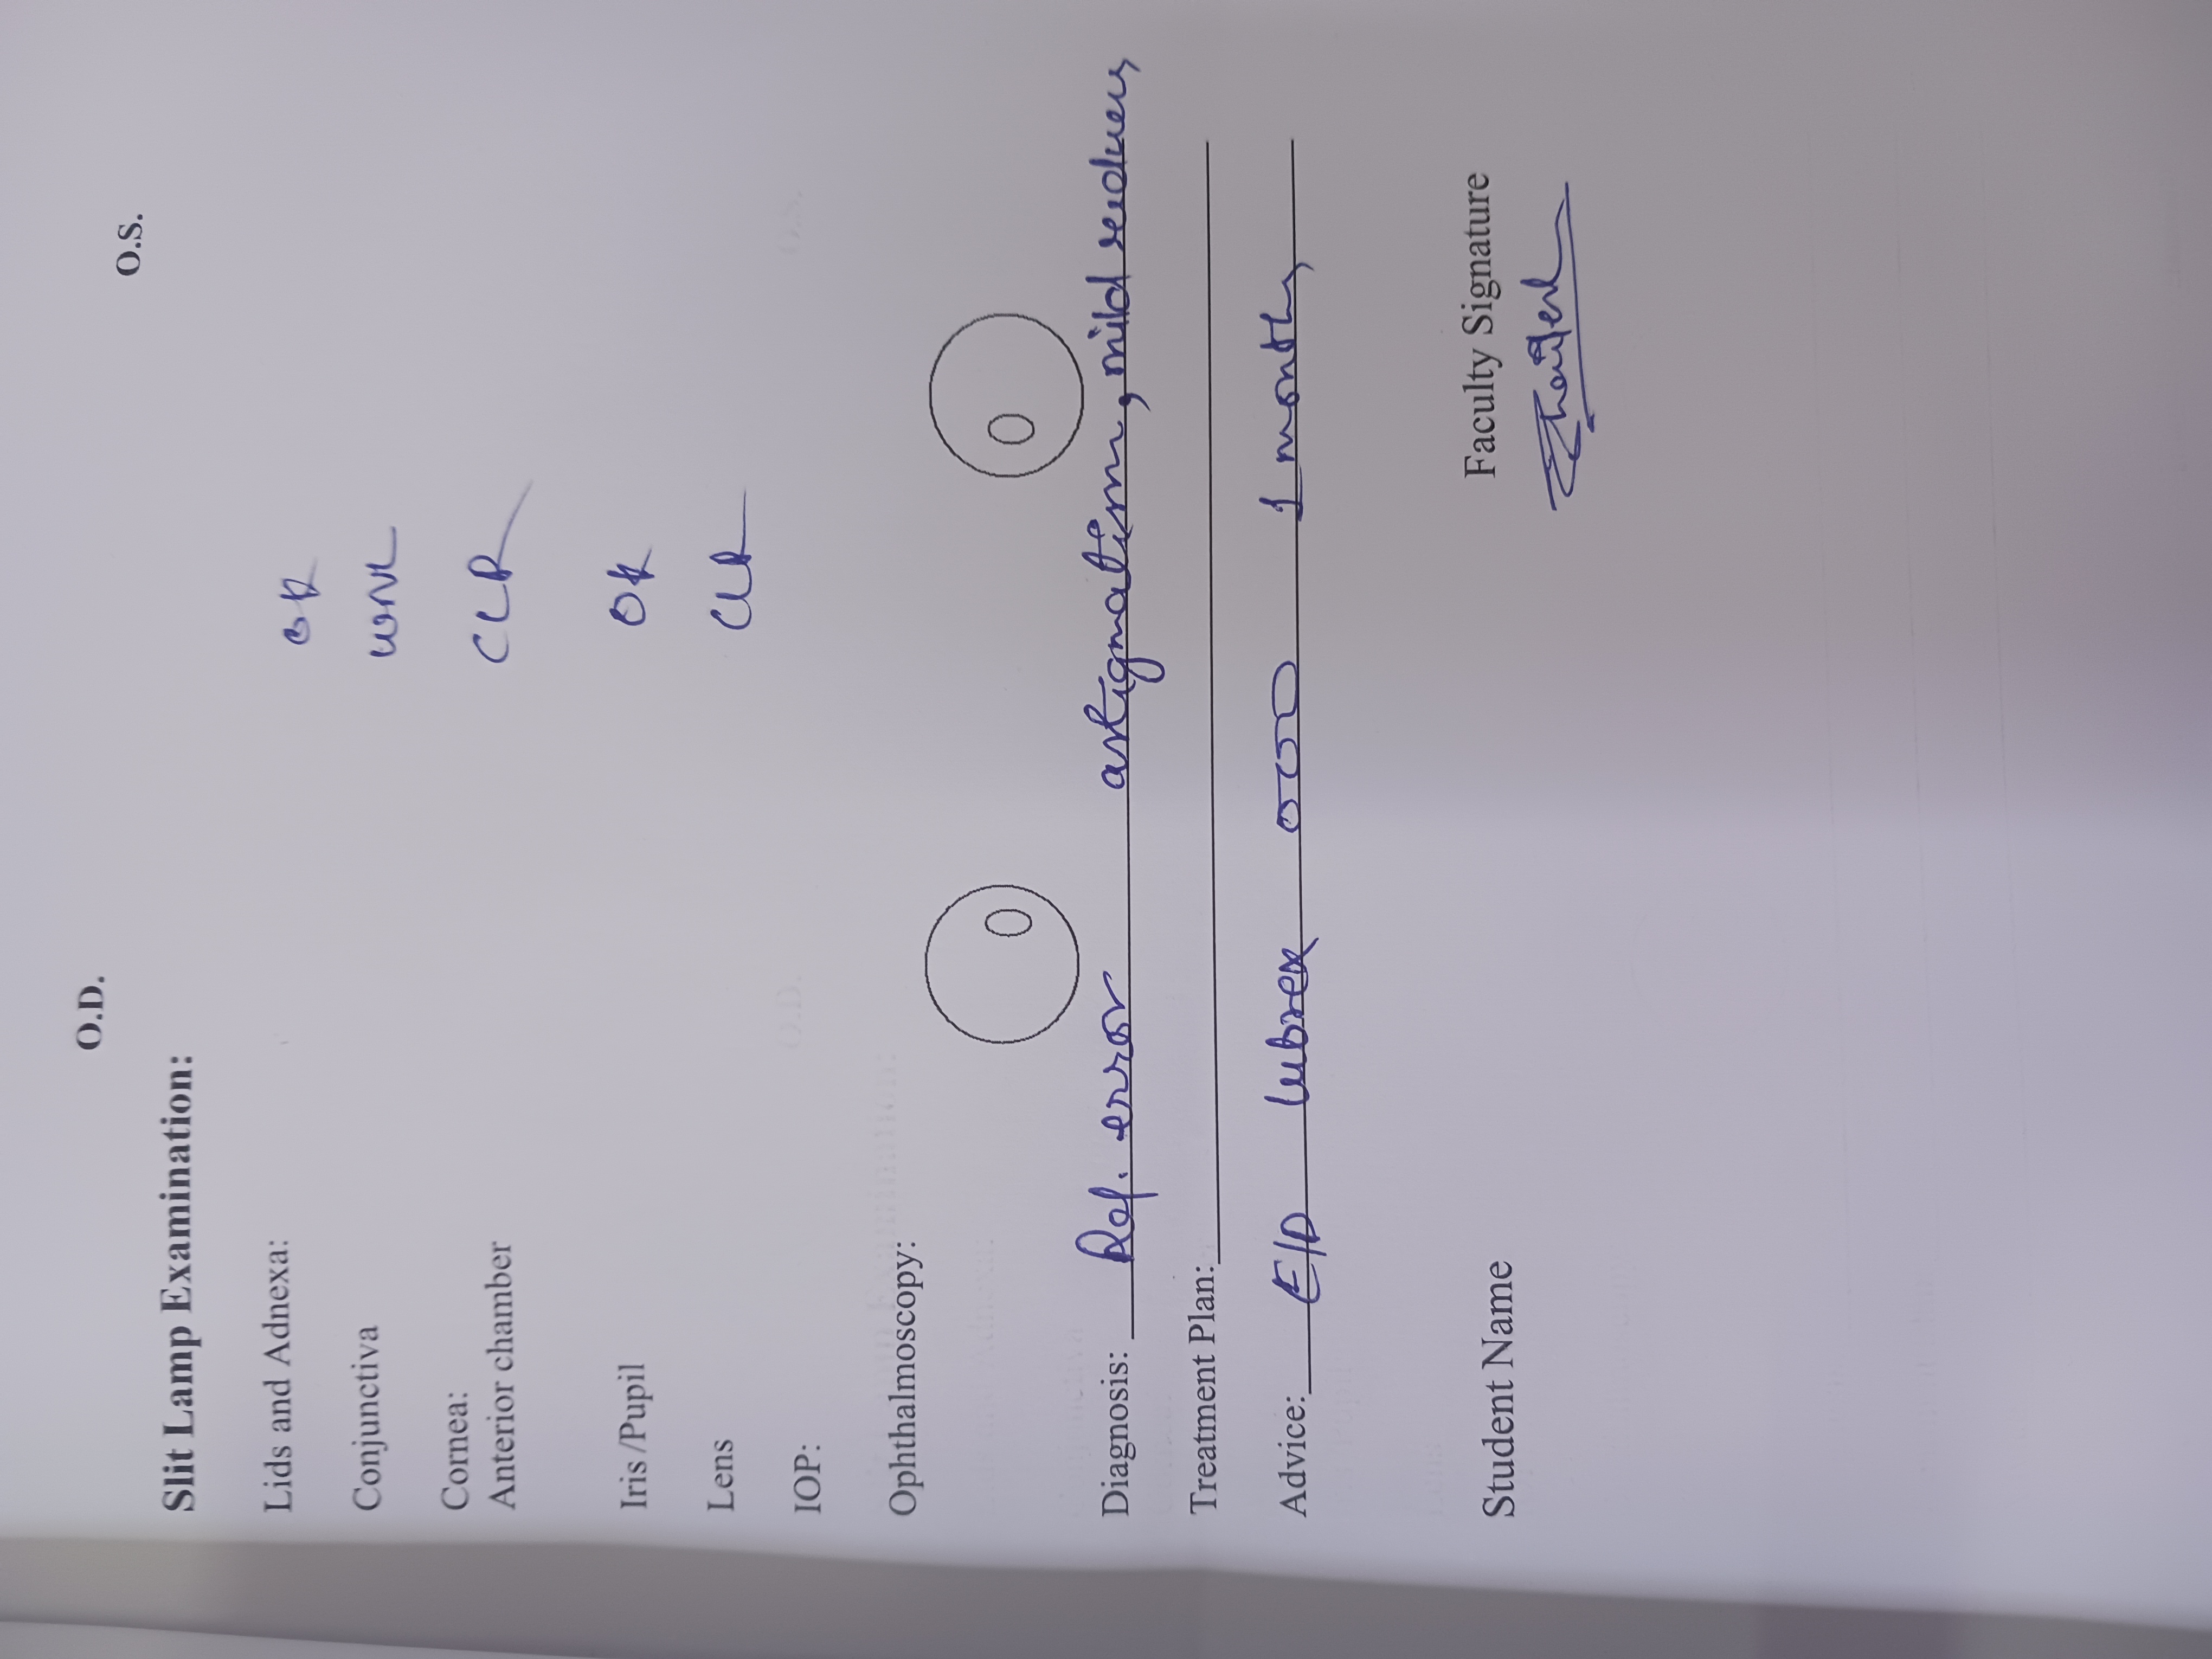 O.D.
O.S.
Slit Lamp Examination:
Lids and Adnexa: OK
Conjunctiva WNL
Cornea:
Anterior chamber CLR
Iris /Pupil OK
Lens CLR
IOP:
Ophthalmoscopy:
Diagnosis: Ref. error astigmatism, mild
Treatment Plan:
Advice: E/D lubrex 000 1 month
Student Name
Faculty Signature